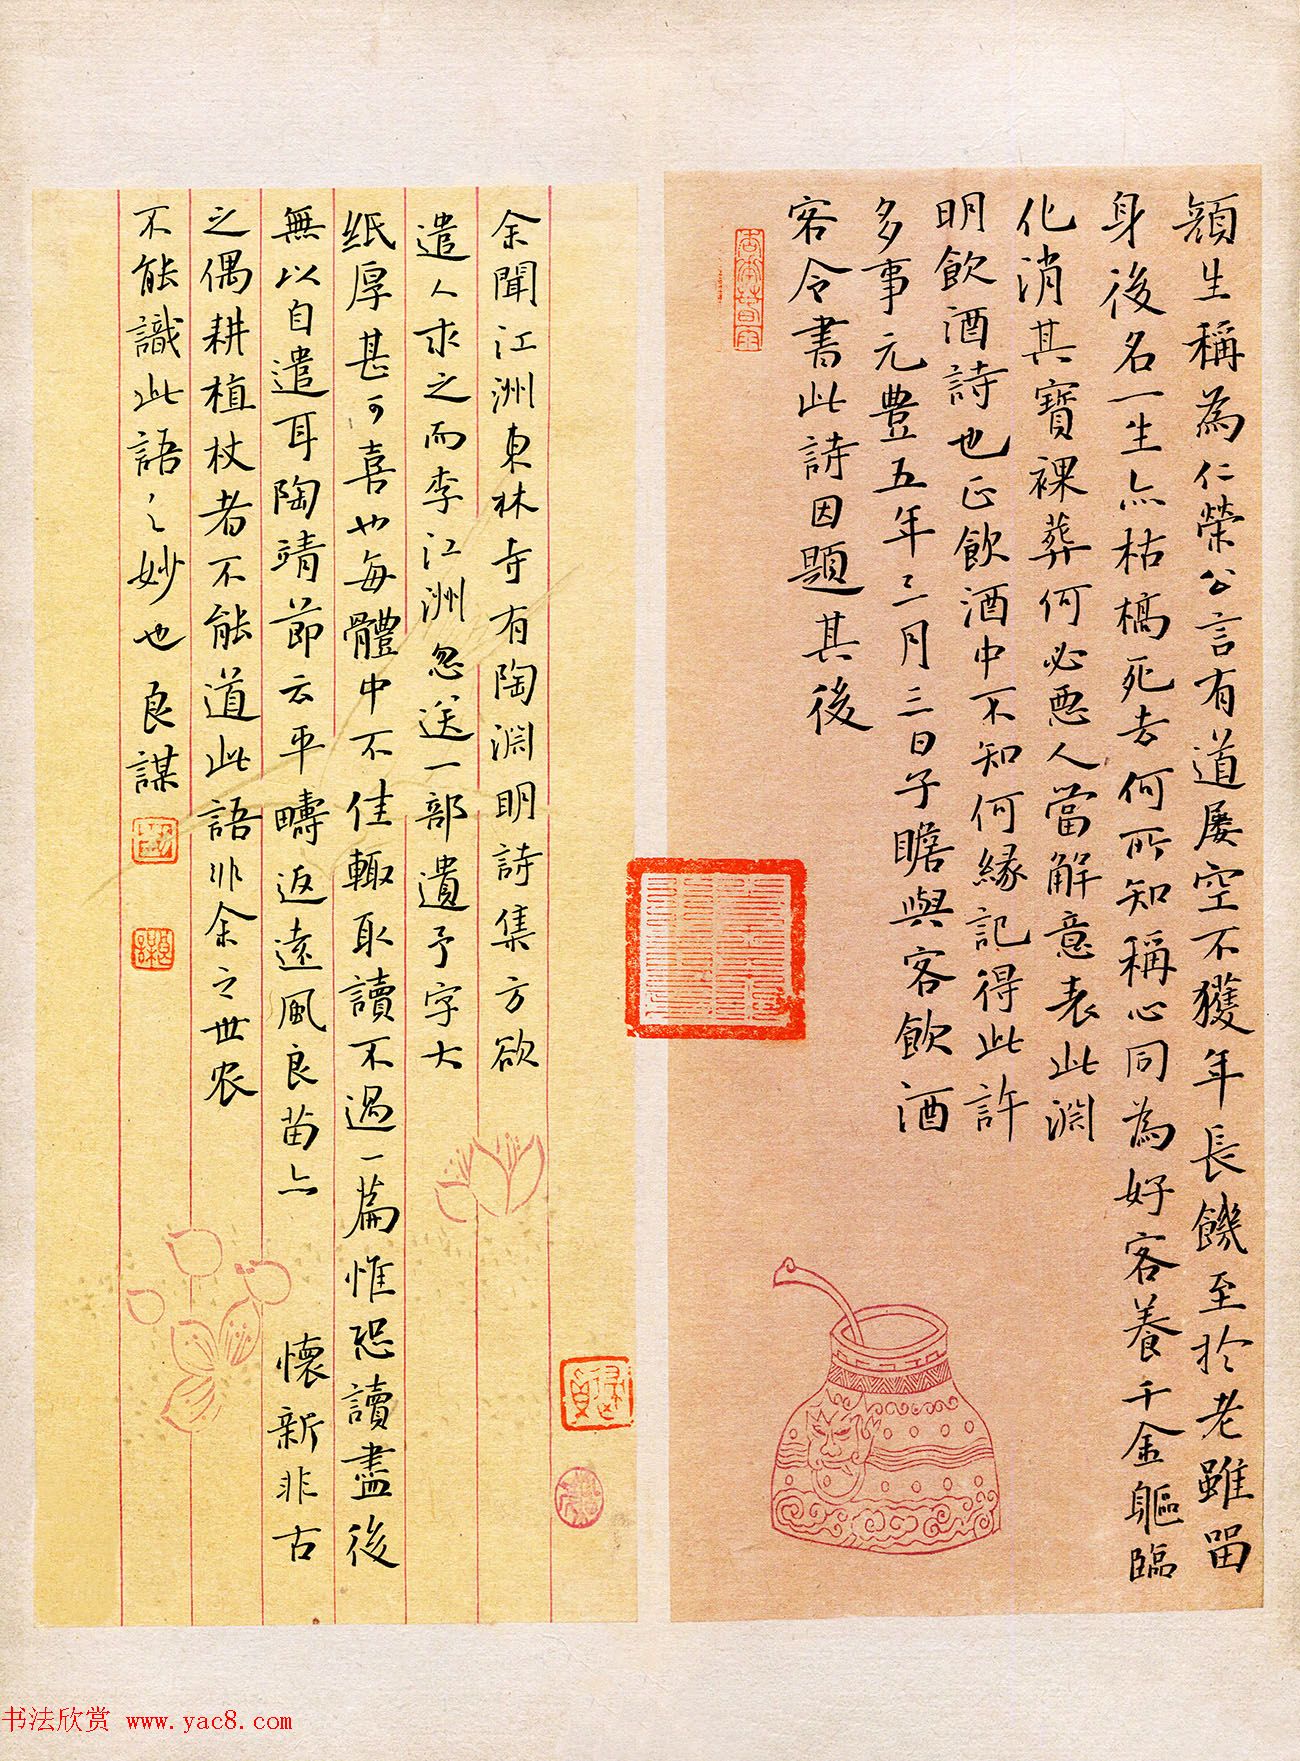 顔生稱為仁榮公言有道屢空不獲年長饑至於老雖留
身後名一生亦枯槁死去何所知稱心固為好客養千金軀臨
化消其寶裸葬何必惡人當解意表此淵
明飲酒詩也正飲酒中不知何緣記得此許
多事元豊五年三月三日子瞻與客飲酒
客令書此詩因題其後
余聞江洲東林寺有陶淵明詩集方欲
遣人求之而李江洲忽送一部遺予字大
紙厚甚可喜也每體中不佳輒取讀不過一篇惟恐讀盡後
無以自遣耳陶靖節云平疇返遠風良苗亦 懷新非古
之偶耕植杖者不能道此語非余之世农
不能識此語之妙也 良謀
书法欣赏 www.yac8.com